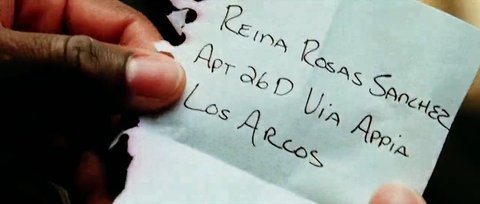 Reina Rosas Sanchez
Apt 26D Via Appia
Los Arcos